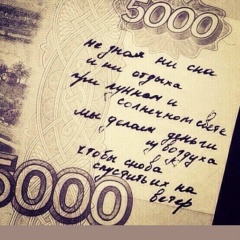 5000
не зная ни сна
и ни отдыха
при лунном и
солнечном свете
мы делаем деньги
из воздуха
чтобы снова
спустить их на
ветер
5000